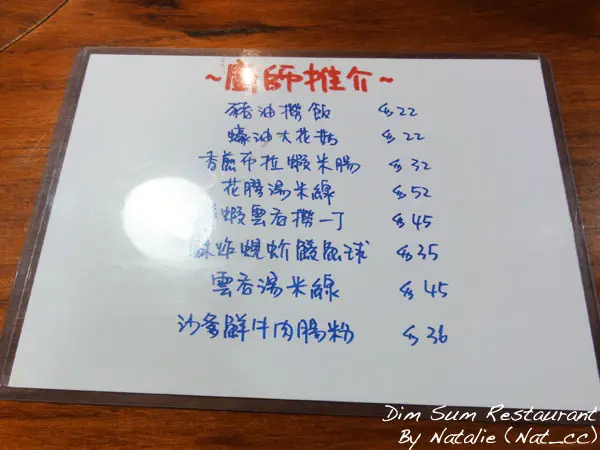 ~廚師推介~
豬油撈飯 $22
蠔油大花菇 $22
香煎布拉蝦米腸 $32
花膠湯米線 $52
蝦雲吞撈一丁 $45
炸蜆蚧鯪魚球 $35
雲吞湯米線 $45
沙爹鮮牛肉腸粉 $36
Dim Sum Restaurant
By Natalie (Nat_cc)